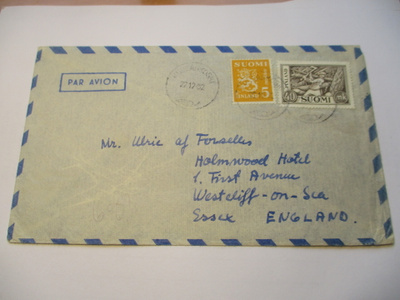 PAR AVION
SUOMI
5
FINLAND
SUOMI
Mr. Ulric af Forselles
Holmwood Hotel
1. First Avenue
Westcliff-on-Sea
Essex ENGLAND.